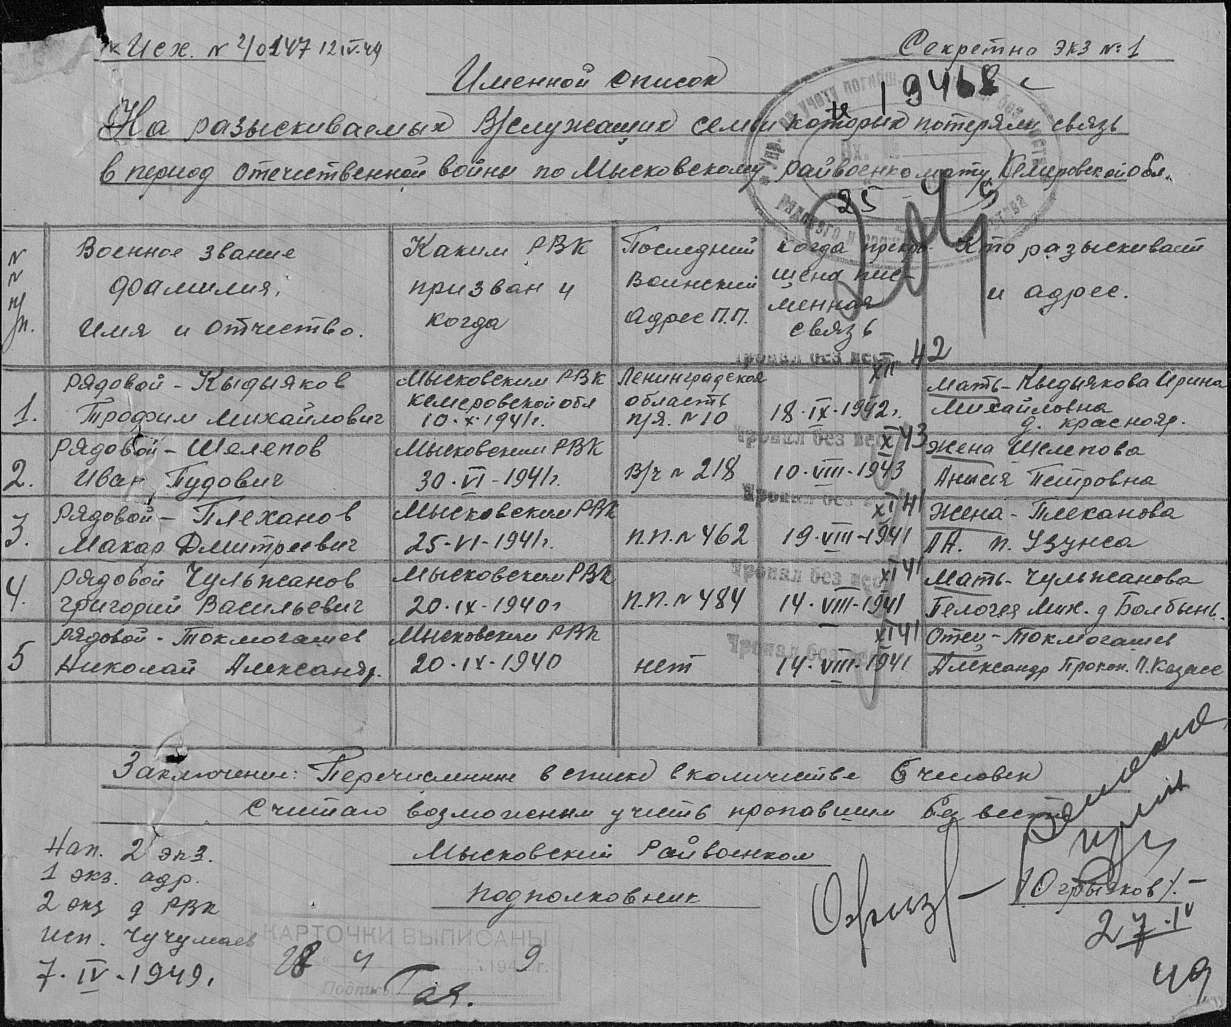 Исх. № 40147 12.IV.49
Секретно экз № 1
19468 с
Именной список
На разыскиваемых В/служащих семьи которых потеряли связь
в период отечественной войны по Мысковскому райвоенкомату Кемеровской обл.
25 4 9
№ п п/п.
Военное звание фамилия, имя и отчество.
Каким РВК призван и когда
Последний Воинский адрес П.П.
когда прекращена письменная связь
Кто разыскивает и адрес.
Пропал без вест. XII 42
1. Рядовой - Кыдыяков Трофим Михайлович
Мысковским РВК Кемеровской обл 10-X-1941г.
Ленинградская область п/я. № 10
18-IX-1942г.
Мать - Кыдыякова Ирина Михайловна д. краснояр.
Пропал без вест XI 43
2. Рядовой - Шелепов Иван Гудович
Мысковским РВК 30-VI-1941г.
В/ч № 218
10-VIII-1943
Жена Шелепова Анисия Петровна
Пропал без XI 41
3. Рядовой - Плеханов Макар Дмитриевич
Мысковским РВК 25-VI-1941г.
П.П. № 462
19-VIII-1941
Жена - Плеханова
Пропал без вест XI 41
4. Рядовой Чульжанов Григорий Васильевич
Мысковским РВК 20-IX-1940г
П.П. № 484
14-VIII-1941
Мать - Чульжанова
Мих. д
Пропал без вес XI 41
5 Рядовой - Токмогашев Николай Александр.
Мысковским РВК 20-IX-1940
нет
14-VIII-1941
Отец - Токмогашев Александр Прокоп.
Заключение: Перечисленные в списке в количестве 5 человек
считаю возможным учесть пропавшим без вести
Мысковский Райвоенком
подполковник
Нап. 2 экз.
1 экз. адр.
2 экз д РВК
исп. Чучумаев
7-IV-1949г.
КАРТОЧКИ ВЫПИСАНЫ
28 4 194 г. 9
Подпись
27-IV
49